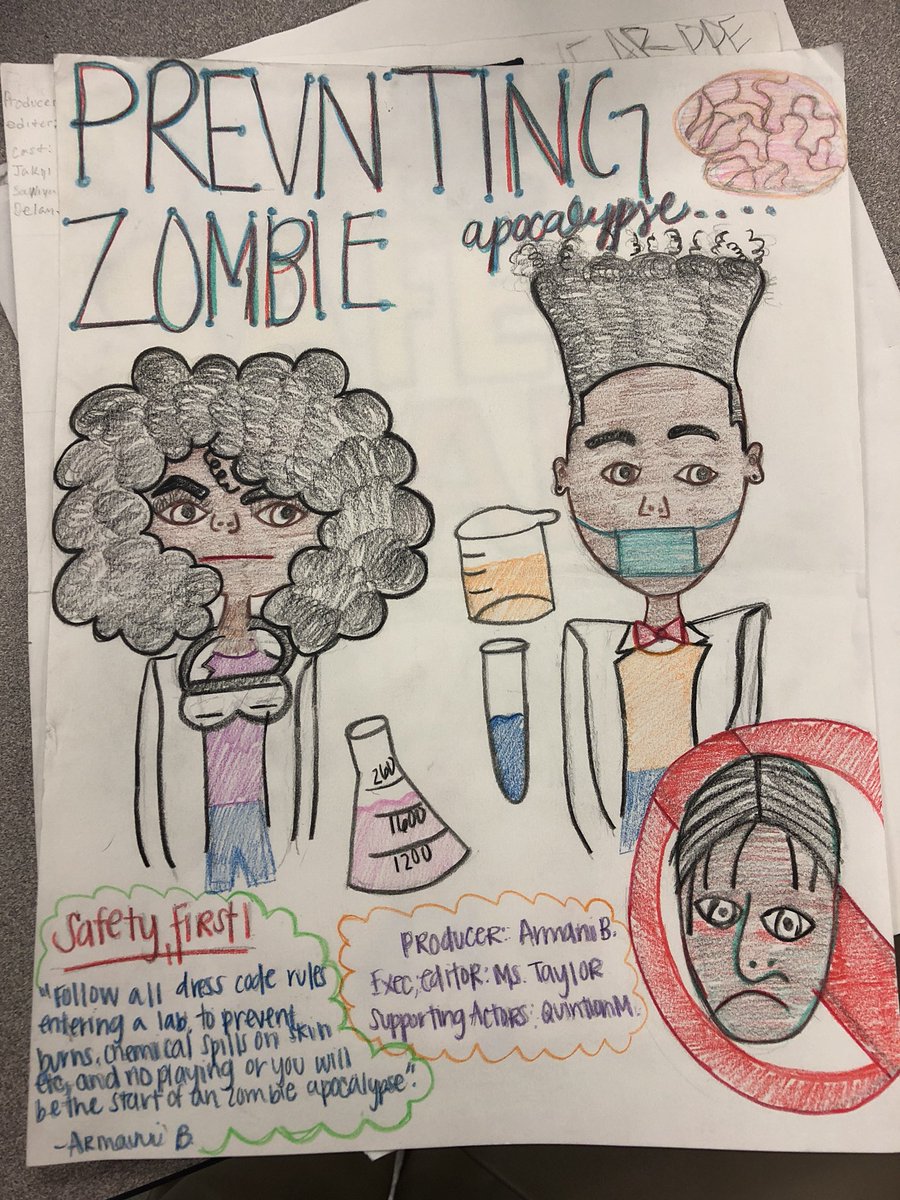 PREVNTING
ZOMBIE
apocalypse....
260
1600
1200
Safety first!
"Follow all dress code rules
entering a lab, to prevent
burns, chemical spills on skin
etc, and no playing or you will
be the start of an zombie apocalypse".
-Armani B.
Producer: Armani B.
Exec; editor: Ms. Taylor
Supporting Actors: Quintion M.
Producer
editer:
cast: